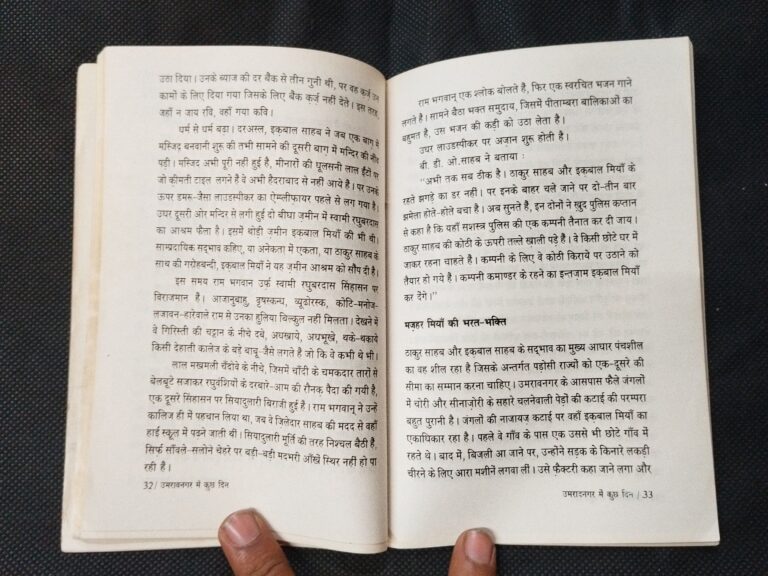 उठा दिया। उनके ब्याज की दर बैंक से तीन गुनी थी, पर वह कर्ज़ उन
कामों के लिए दिया गया जिसके लिए बैंक कर्ज़ नहीं देते। इस तरह,
जहाँ न जाय रवि, वहाँ गया कवि।
धर्म से धर्म बढ़ा। दरअस्ल, इकबाल साहब ने जब एक बाग़ में
मस्जिद बनवानी शुरू की तभी सामने की दूसरी बाग में मन्दिर की नींव
पड़ी। मस्जिद अभी पूरी नहीं हुई है, मीनारों की धूलसनी लाल ईंटों पर
जो क़ीमती टाइल लगने हैं वे अभी हैदराबाद से नहीं आये हैं। पर उनके
ऊपर डमरू-जैसा लाउडस्पीकर का ऐम्प्लीफायर पहले से लग गया है।
उधर दूसरी ओर मन्दिर से लगी हुई दो बीघा ज़मीन में स्वामी रघुबरदास
का आश्रम फैला है। इसमें थोड़ी ज़मीन इकबाल मियाँ की भी थी।
साम्प्रदायिक सद्‌भाव कहिए, या अनेकता में एकता, या ठाकुर साहब के
साथ की गरोहबन्दी, इकबाल मियाँ ने यह ज़मीन आश्रम को सौंप दी है।
इस समय राम भगवान उर्फ़ स्वामी रघुबरदास सिंहासन पर
विराजमान हैं। आजानुबाहु, वृषस्कन्ध, व्यूढोरस्क, कोटि-मनोज-
लजावन-हारेवाले राम से उनका हुलिया बिल्कुल नहीं मिलता। देखने में
वे गिरिस्ती की चट्टान के नीचे दबे, अधखाये, अधभूखे, थके-थकाये
किसी देहाती कालेज के बड़े बाबू-जैसे लगते हैं जो कि वे कभी थे भी।
लाल मखमली चँदोवे के नीचे, जिसमें चाँदी के चमकदार तारों से
बेलबूटे सजाकर रघुवंशियों के दरबारे-आम की रौनक़ पैदा की गयी है,
एक दूसरे सिंहासन पर सियादुलारी बिराजी हुई हैं। राम भगवान् ने उन्हें
कालिज ही में पहचान लिया था, जब वे ज़िलेदार साहब की मदद से वहाँ
हाई स्कूल में पढ़ने जाती थीं। सियादुलारी मूर्ति की तरह निश्चल बैठी हैं,
सिर्फ़ साँवले-सलोने चेहरे पर बड़ी-बड़ी मदभरी आँखें स्थिर नहीं हो पा
रही हैं।
32 / उमरावनगर में कुछ दिन
राम भगवान् एक श्लोक बोलते हैं, फिर एक स्वरचित भजन गाने
लगते हैं। सामने बैठा भक्त समुदाय, जिसमें पीताम्बरा बालिकाओं का
बहुमत है, उस भजन की कड़ी को उठा लेता है।
उधर लाउडस्पीकर पर अज़ान शुरू होती है।
बी. डी. ओ. साहब ने बताया :
"अभी तक सब ठीक है। ठाकुर साहब और इक़बाल मियाँ के
रहते झगड़े का डर नहीं। पर इनके बाहर चले जाने पर दो-तीन बार
झमेला होते-होते बचा है। अब सुनते हैं, इन दोनों ने ख़ुद पुलिस कप्तान
से कहा है कि वहाँ सशस्त्र पुलिस की एक कम्पनी तैनात कर दी जाय।
ठाकुर साहब की कोठी के ऊपरी तल्ले खाली पड़े हैं। वे किसी छोटे घर में
जाकर रहना चाहते हैं। कम्पनी के लिए वे कोठी किराये पर उठाने को
तैयार हो गये हैं। कम्पनी कमाण्डर के रहने का इन्तज़ाम इक़बाल मियाँ
कर देंगे।"
मज़हर मियाँ की भरत-भक्ति
ठाकुर साहब और इक़बाल साहब के सद्‌भाव का मुख्य आधार पंचशील
का वह शील रहा है जिसके अन्तर्गत पड़ोसी राज्यों को एक-दूसरे की
सीमा का सम्मान करना चाहिए। उमरावनगर के आसपास फैले जंगलों
में चोरी और सीनाज़ोरी के सहारे चलनेवाली पेड़ों की कटाई की परम्परा
बहुत पुरानी है। जंगलों की नाजायज़ कटाई पर वहाँ इक़बाल मियाँ का
एकाधिकार रहा है। पहले वे गाँव के पास एक उससे भी छोटे गाँव में
रहते थे। बाद में, बिजली आ जाने पर, उन्होंने सड़क के किनारे लकड़ी
चीरने के लिए आरा मशीनें लगवा लीं। उसे फ़ैक्टरी कहा जाने लगा और
उमरावनगर में कुछ दिन / 33